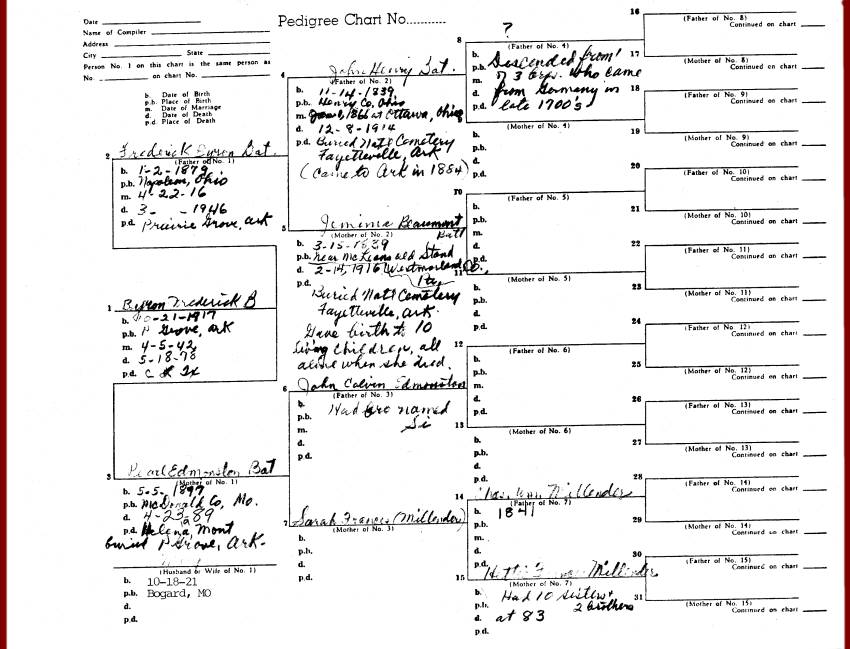 Pedigree Chart No...........
Date
Name of Compiler
Address
City State
Person No. 1 on this chart is the same person as
No. on chart No.
b. Date of Birth
p.b. Place of Birth
m. Date of Marriage
d. Date of Death
p.d. Place of Death
2
Frederick Byron Bat.
(Father of No. 1)
b. 1-2-1879
p.b. Napoleon, Ohio
m. 4-22-16
d. 3- -1946
p.d. Prairie Grove, Ark
1 Byron Frederick B
b. 10-21-1917
p.b. P Grove, Ark
m. 4-5-42
d. 5-18-78
p.d. C Tx
3 Pearl Edmonston Bat
(Mother of No. 1)
b. 5-5-1897
p.b. McDonald Co, Mo.
d. 4-23-89
p.d. Helena, Mont
buried P Grove, Ark.
(Husband or Wife of No. 1)
b. 10-18-21
p.b. Bogard, MO
d.
p.d.
4 John Henry Bat.
(Father of No. 2)
b. 11-14-1839
p.b. Henry Co. Ohio
m. 1866 at Ottawa, Ohio
d. 12-8-1914
p.d. Buried Natl Cemetery
Fayetteville, Ark
(Came to Ark in 1884)
5 Jemima Beaumont
Batt
(Mother of No. 2)
b. 3-15-1839
p.b. Near McKeans old Stand
d. 2-14, 1916 Westmorland Co.,
p.d. Pa
Buried Natl Cemetery
Fayetteville, Ark.
Gave birth to 10
living children, all
alive when she died.
6 John Calvin Edmonston
(Father of No. 3)
b. Had bro named
p.b. Si
m.
d.
p.d.
7 Sarah Frances (Millender)
(Mother of No. 3)
b.
p.b.
d.
p.d.
8 ?
(Father of No. 4)
b. Descended from
p.b. 3 bros. who came
m. from Germany in
d. late 1700's
p.d.
(Mother of No. 4)
b.
p.b.
d.
p.d.
10
(Father of No. 5)
b.
p.b.
m.
d.
p.d.
11
(Mother of No. 5)
b.
p.b.
d.
p.d.
12
(Father of No. 6)
b.
p.b.
m.
d.
p.d.
13
(Mother of No. 6)
b.
p.b.
d.
p.d.
14 Millender
(Father of No. 7)
b. 1841
p.b.
m.
d.
p.d.
15 Millender
(Mother of No. 7)
b. Had 10 sisters +
p.b. 2 brothers
d. at 83
p.d.
16
(Father of No. 8)
Continued on chart
17
(Mother of No. 8)
Continued on chart
18
(Father of No. 9)
Continued on chart
19
(Mother of No. 9)
Continued on chart
20
(Father of No. 10)
Continued on chart
21
(Mother of No. 10)
Continued on chart
22
(Father of No. 11)
Continued on chart
23
(Mother of No. 11)
Continued on chart
24
(Father of No. 12)
Continued on chart
25
(Mother of No. 12)
Continued on chart
26
(Father of No. 13)
Continued on chart
27
(Mother of No. 13)
Continued on chart
28
(Father of No. 14)
Continued on chart
29
(Mother of No. 14)
Continued on chart
30
(Father of No. 15)
Continued on chart
31
(Mother of No. 15)
Continued on chart